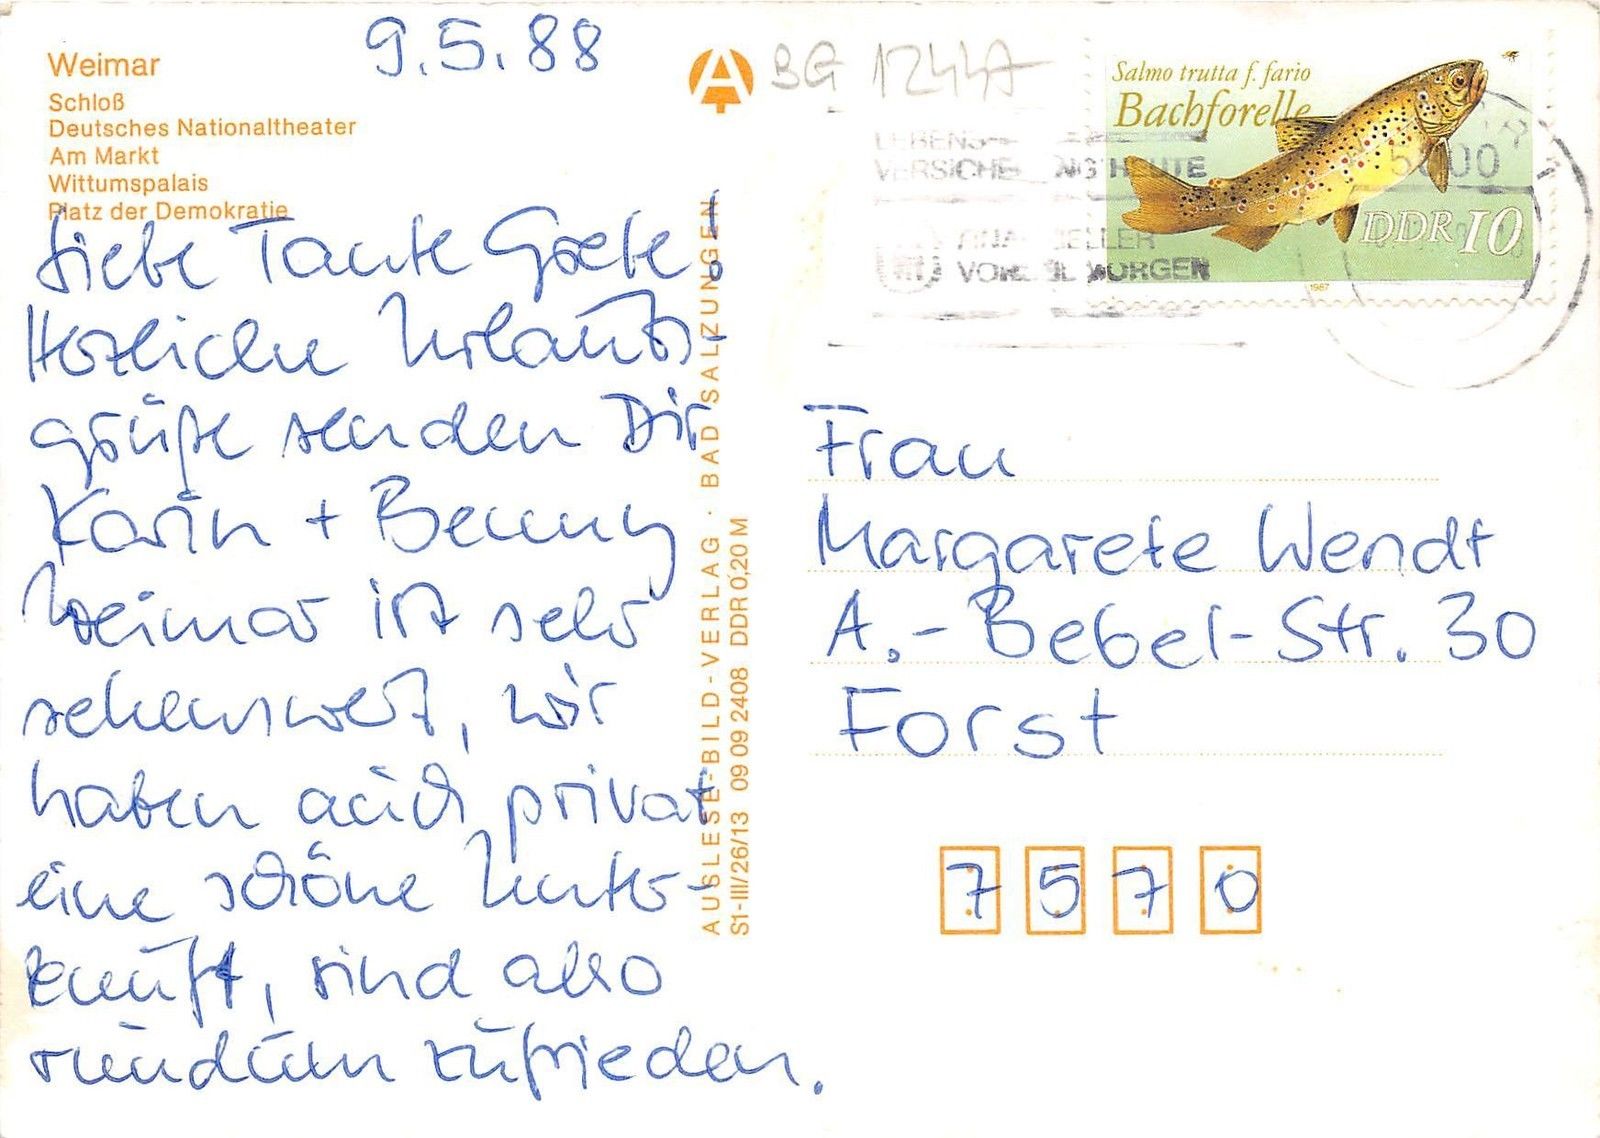 9.5.88
Weimar
Schloß
Deutsches Nationaltheater
Am Markt
Wittumspalais
Platz der Demokratie
Liebe Tante Grete!
Herzliche Urlaubs-
grüße senden Dir
Karin + Benny
Weimar ist sehr
sehenswert, wir
haben auch privat
eine schöne Unter-
kunft, sind also
rundum zufrieden.
AUSLESE-BILD-VERLAG · BAD SALZUNGEN
S1-III/26/13 09 09 2408 DDR 0,20 M
A
BG 12447
Salmo trutta f. fario
Bachforelle
DDR 10
1987
LEBENS-
HEUTE
MORGEN
Frau
Margarete Wendt
A.-Bebel-Str. 30
Forst
7570